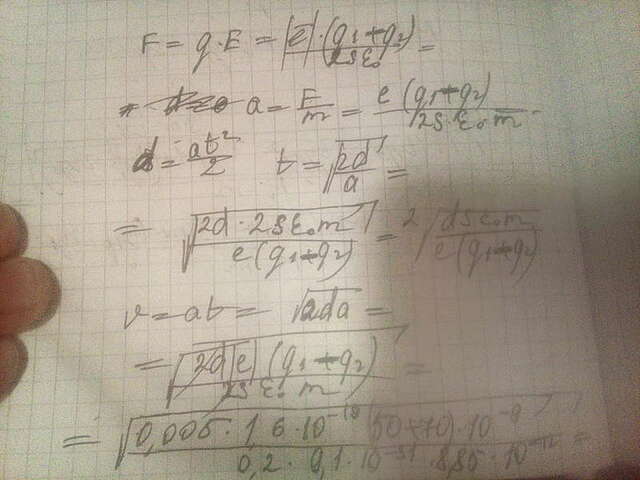 F = q·E = |e|·(q₁+q₂)/2Sε₀ =
a = F/m = e(q₁+q₂)/2S·ε₀m
d = at²/2 t = √(2d/a) =
= √(2d·2Sε₀m/e(q₁+q₂)) = 2√(dSε₀m/e(q₁+q₂))
v = at = √(2da) =
= √(2d|e|(q₁+q₂)/2Sε₀m) =
= √(0,005·1,6·10⁻¹⁹ (50+70)·10⁻⁹/0,2·9,1·10⁻³¹·8,85·10⁻¹²) =